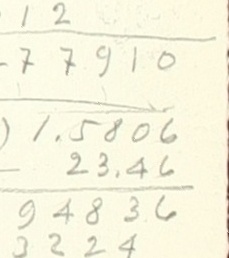 12
77910
) 1.5806
23.46
94836
3224